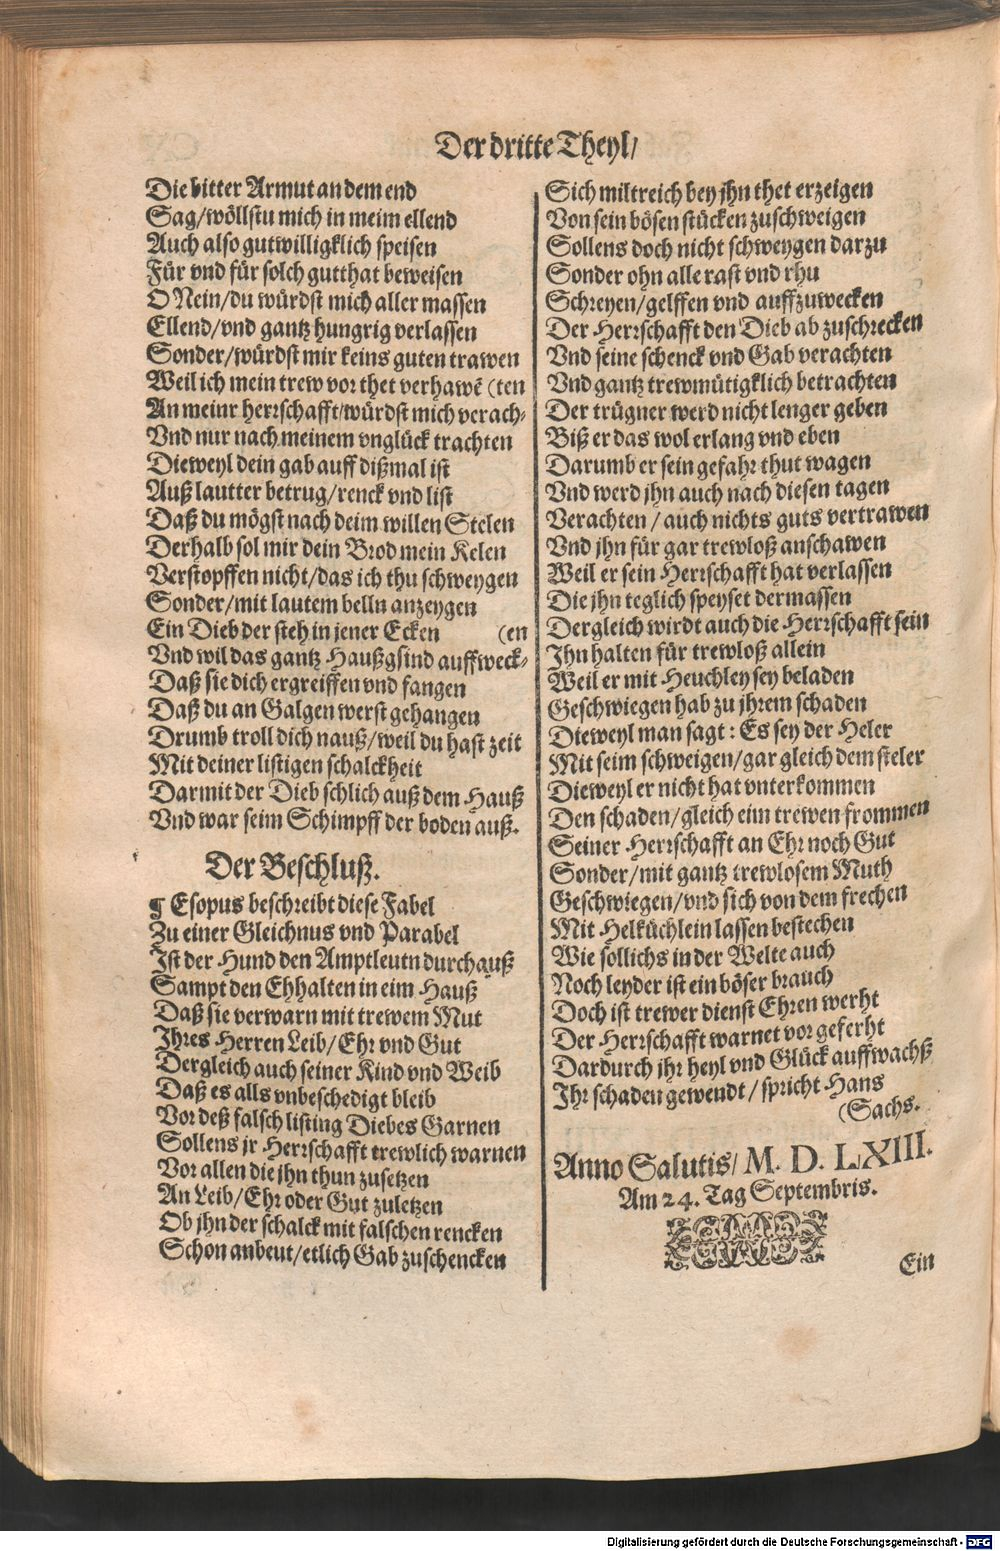 Der dritte Theyl/
Die bitter Armut an dem end
Sag/wöllstu mich in meim ellend
Auch also gutwilligklich speisen
Für vnd für solch gutthat beweisen
O Nein/du würdst mich aller massen
Ellend/vnd gantz hungrig verlassen
Sonder/würdst mir keins guten trawen
Weil ich mein trew vor thet verhawẽ (ten
An meinr herrschafft/würdst mich verach-
Vnd nur nach meinem vnglück trachten
Dieweyl dein gab auff dißmal ist
Auß lautter betrug/renck vnd list
Daß du mögst nach deim willen Stelen
Derhalb sol mir dein Brod mein Kelen
Verstopffen nicht/das ich thu schweygen
Sonder/mit lautem belln anzeygen
Ein Dieb der steh in jener Ecken (en
Vnd wil das gantz Haußgsind auffweck-
Daß sie dich ergreiffen vnd fangen
Daß du an Galgen werst gehangen
Drumb troll dich nauß/weil du hast zeit
Mit deiner listigen schalckheit
Darmit der Dieb schlich auß dem Hauß
Vnd war seim Schimpff der boden auß.
Der Beschluß.
¶ Esopus beschreibt diese Fabel
Zu einer Gleichnus vnd Parabel
Ist der Hund den Amptleutn durchauß
Sampt den Ehhalten in eim Hauß
Daß sie verwarn mit trewem Mut
Ihres Herren Leib/Ehr vnd Gut
Dergleich auch seiner Kind vnd Weib
Daß es alls vnbeschedigt bleib
Vor deß falsch listing Diebes Garnen
Sollens jr Herrschafft trewlich warnen
Vor allen die jhn thun zusetzen
An Leib/Ehr oder Gut zuletzen
Ob jhn der schalck mit falschen rencken
Schon anbeut/etlich Gab zuschencken
Sich miltreich bey jhn thet erzeigen
Von sein bösen stücken zuschweigen
Sollens doch nicht schweygen darzu
Sonder ohn alle rast vnd rhu
Schreyen/gelffen vnd auffzuwecken
Der Herrschafft den Dieb ab zuschrecken
Vnd seine schenck vnd Gab verachten
Vnd gantz trewmütigklich betrachten
Der trügner werd nicht lenger geben
Biß er das wol erlang vnd eben
Darumb er sein gefahr thut wagen
Vnd werd jhn auch nach diesen tagen
Verachten / auch nichts guts vertrawen
Vnd jhn für gar trewloß anschawen
Weil er sein Herrschafft hat verlassen
Die jhn teglich speyset dermassen
Dergleich wirdt auch die Herrschafft sein
Ihn halten für trewloß allein
Weil er mit Heuchley sey beladen
Geschwiegen hab zu jhrem schaden
Dieweyl man sagt: Es sey der Heler
Mit seim schweigen/gar gleich dem steler
Dieweyl er nicht hat vnterkommen
Den schaden/gleich eim trewen frommen
Seiner Herrschafft an Ehr noch Gut
Sonder/mit gantz trewlosem Muth
Geschwiegen/vnd sich von dem frechen
Mit Helküchlein lassen bestechen
Wie sollichs in der Welte auch
Noch leyder ist ein böser brauch
Doch ist trewer dienst Ehren werht
Der Herrschafft warnet vor geferht
Dardurch jhr heyl vnd Glück auffwachß
Ihr schaden gewendt / spricht Hans
(Sachs.
Anno Salutis/ M. D. LXIII.
Am 24. Tag Septembris.
Ein
Digitalisierung gefördert durch die Deutsche Forschungsgemeinschaft - DFG